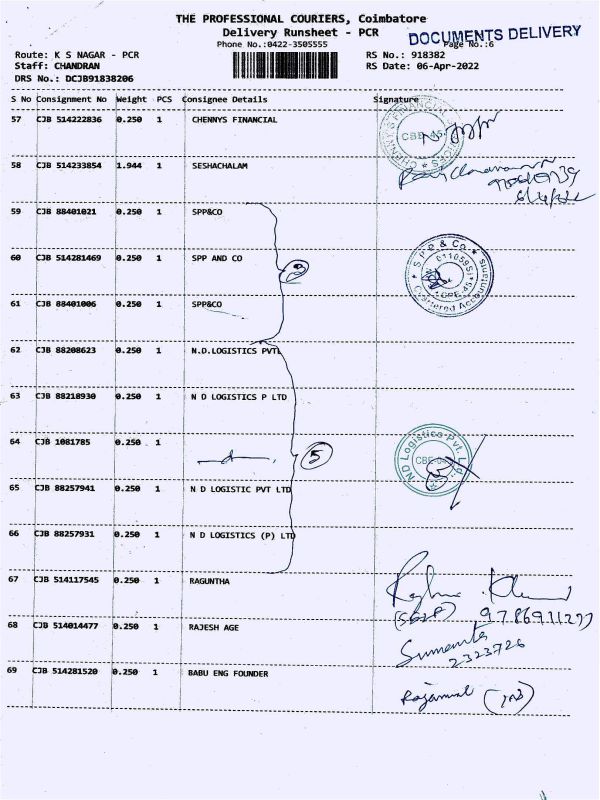 THE PROFESSIONAL COURIERS, Coimbatore
Delivery Runsheet - PCR
DOCUMENTS DELIVERY
Phone No.:0422-3505555
Page No.:6
Route: K S NAGAR - PCR
RS No.: 918382
Staff: CHANDRAN
RS Date: 06-Apr-2022
DRS No.: DCJB91838206
S No Consignment No Weight PCS Consignee Details Signature
57 CJB 514222836 0.250 1 CHENNYS FINANCIAL
58 CJB 514233854 1.944 1 SESHACHALAM
59 CJB 88401021 0.250 1 SPP&CO
60 CJB 514281469 0.250 1 SPP AND CO
S P P & Co. Chartered Accountants
61 CJB 88401006 0.250 1 SPP&CO
62 CJB 88208623 0.250 1 N.D.LOGISTICS PVTL
63 CJB 88218930 0.250 1 N D LOGISTICS P LTD
64 CJB 1081785 0.250 1
5
N D Logistics Pvt. Ltd
65 CJB 88257941 0.250 1 N D LOGISTIC PVT LTD
66 CJB 88257931 0.250 1 N D LOGISTICS (P) LTD
67 CJB 514117545 0.250 1 RAGUNTHA
68 CJB 514014477 0.250 1 RAJESH AGE
2323726
69 CJB 514281520 0.250 1 BABU ENG FOUNDER